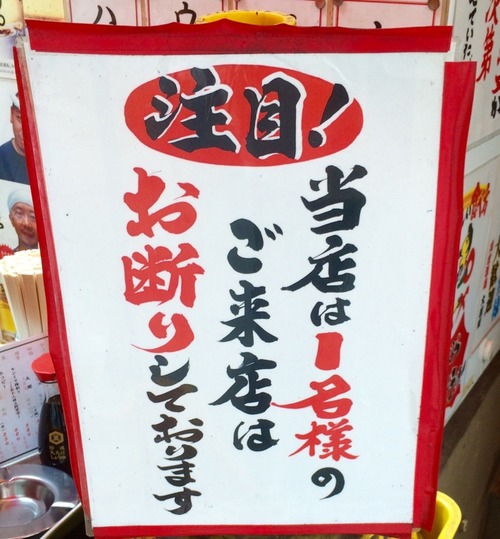 注目!
当店は1名様の
ご来店は
お断りしております